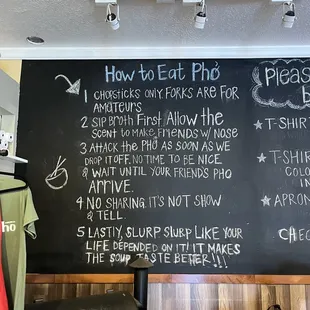 How to Eat Phở
1 Chopsticks only Forks are for
amateurs
2 Sip broth First, Allow the
scent to make friends w/ nose
3 Attack the Phở as soon as we
drop it off. No time to be nice
& wait until your friend's pho
arrive.
4 No sharing. It's not show
& tell.
5 Lastly, slurp slurp like your
life depended on it! It makes
the soup taste better!!!
Pleas
★ T-Shirt
★ T-Shirt
Colo
in
★ Apron
Chec
ho